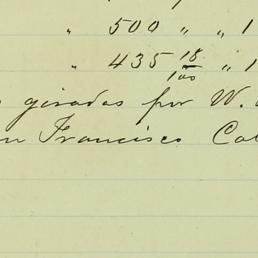 " 500 " " 1
" 435 18/100 " 1
giradas por W.
Francisco Cal